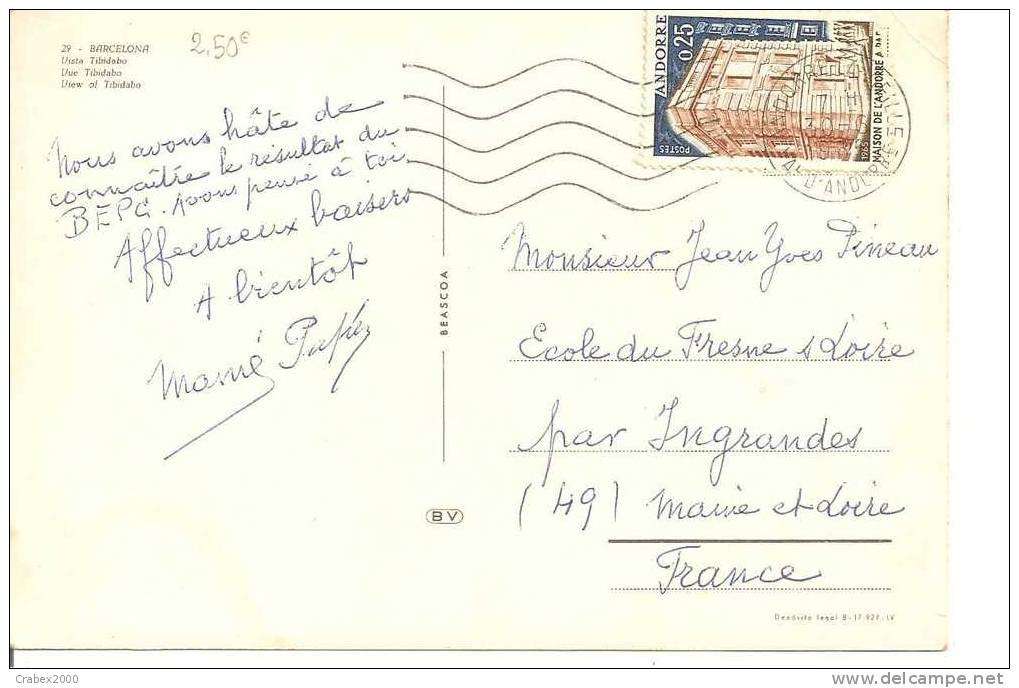 29 - BARCELONA
Vista Tibidabo
Vue Tibidabo
View of Tibidabo
2,50€
Nous avons hâte de
connaître le résultat du
BEPC. Avons pensé à toi.
Affectueux baisers
A bientôt
Mamé
BEASCOA
BV
ANDORRE
0,25
POSTES
MAISON DE L'ANDORRE A PARIS
1965
Monsieur Jean Yves Pineau
Ecole du Fresne s Loire
par Ingrandes
(49) Maine et Loire
France
Depósito legal B-17.927-IV
Crabex2000
www.delcampe.net